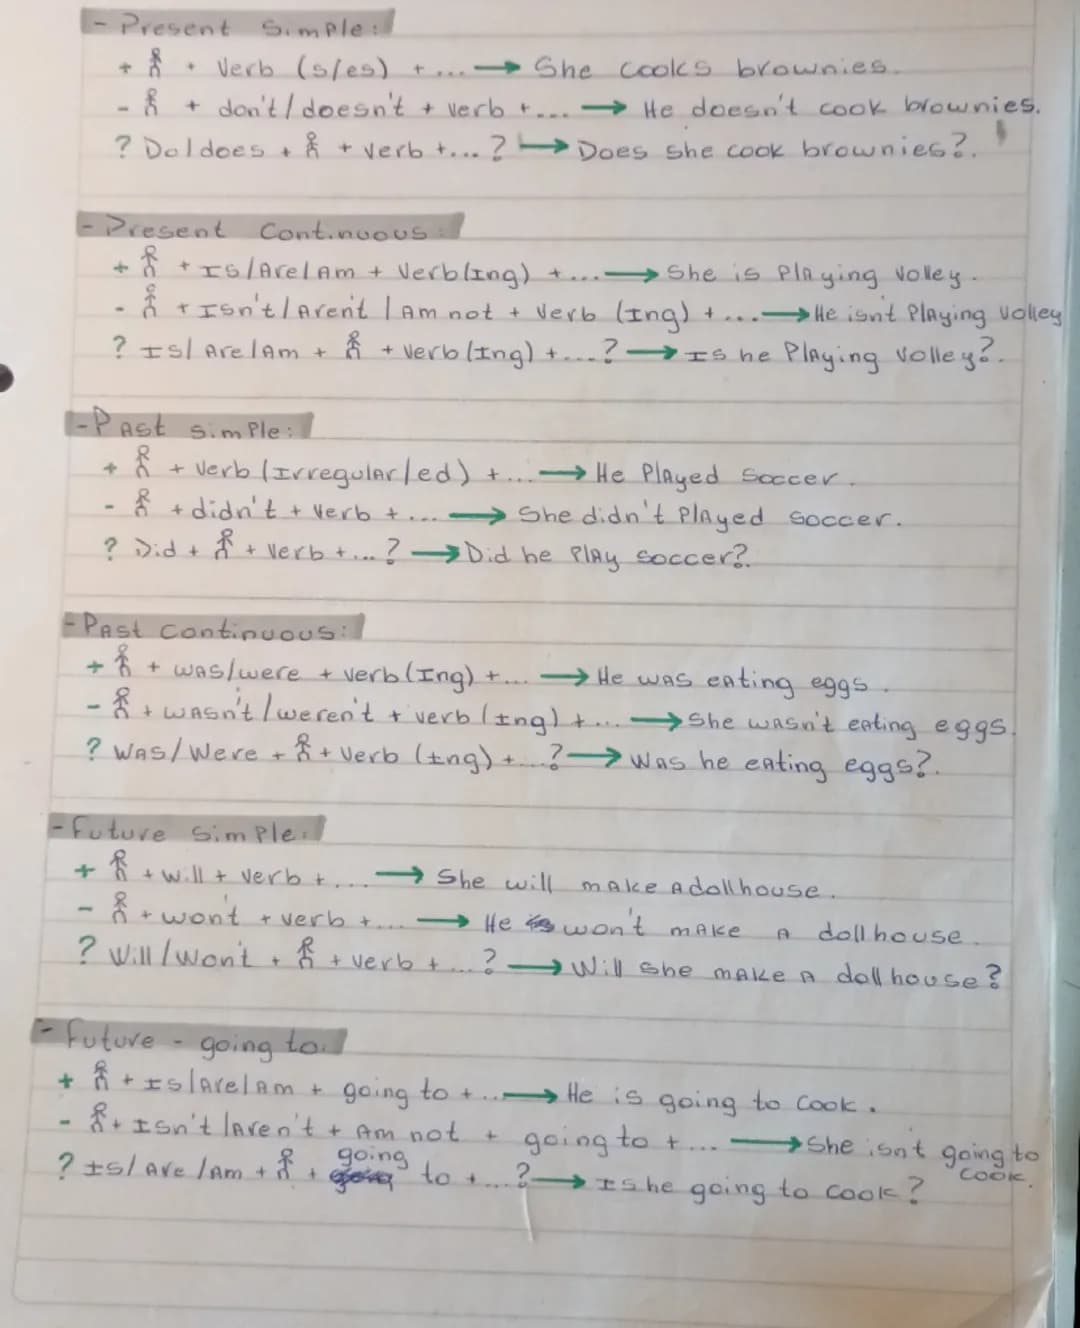 - Present Simple:
+ + Verb (s/es) + ... → She cooks brownies.
- + don't / doesn't + verb + ... → He doesn't cook brownies.
? Do/does + + verb + ... ? → Does she cook brownies?.
- Present Continuous:
+ + Is/Are/Am + Verb (Ing) + ... → She is Playing Volley.
- + Isn't / Aren't / Am not + Verb (Ing) + ... → He isn't Playing Volley
? Is/ Are/Am + + Verb (Ing) + ...? → Is he Playing Volley?.
- Past simple:
+ + Verb (Irregular/ed) + ... → He Played Soccer.
- + didn't + Verb + ... → She didn't Played soccer.
? Did + + Verb + ... ? → Did he Play soccer?.
- Past continuous:
+ + was/were + verb (Ing) + ... → He was eating eggs.
- + wasn't / weren't + verb (Ing) + ... → She wasn't eating eggs.
? Was/Were + + Verb (Ing) + ...? → Was he eating eggs?.
- Future Simple:
+ + will + verb + ... → She will make a dollhouse.
- + won't + verb + ... → He won't make a dollhouse.
? Will/Won't + + verb + ...? → Will she make a dollhouse?
- Future - going to:
+ + Is/Are/Am + going to + ... → He is going to cook.
- + Isn't /Aren't + Am not + going to + ... → She isn't going to cook.
? Is/ Are /Am + + going to + ...? → Is he going to cook?